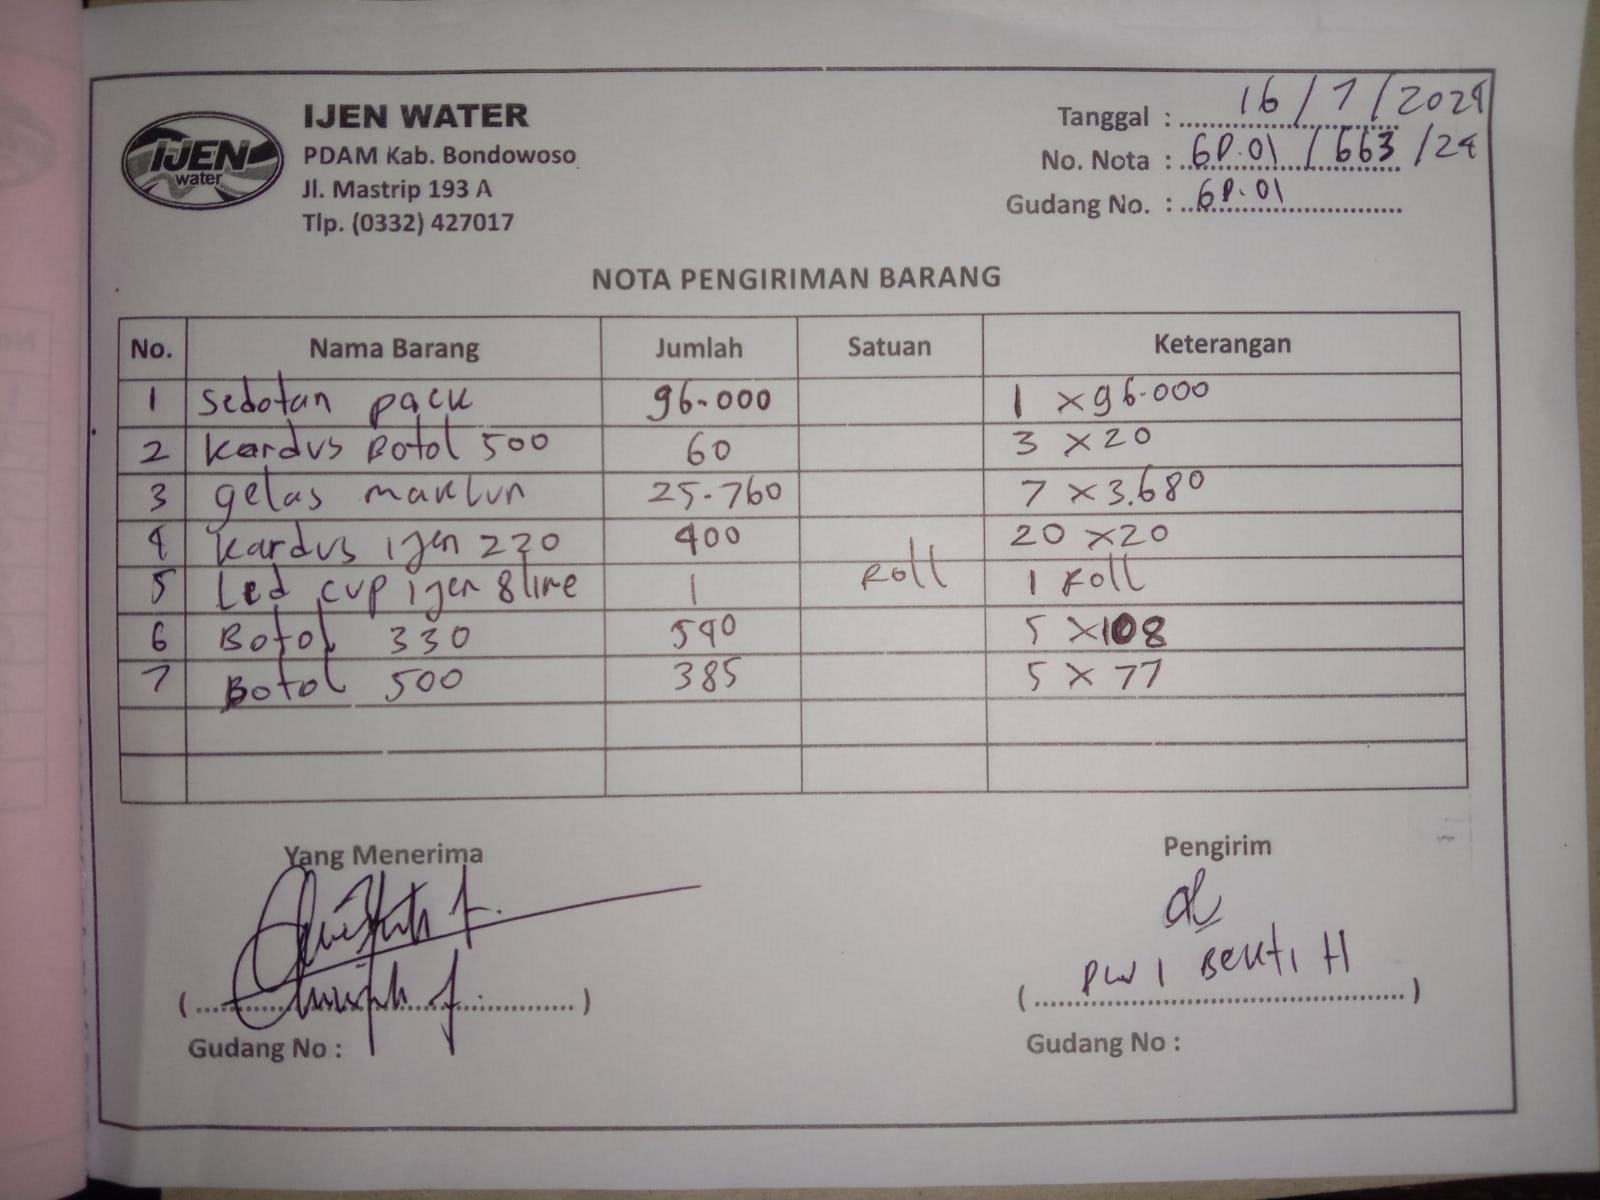 IJEN
water
IJEN WATER
PDAM Kab. Bondowoso
Jl. Mastrip 193 A
Tlp. (0332) 427017
Tanggal : 16 / 7 / 2024
No. Nota : GP.01 / 663 / 24
Gudang No. : GP.01
NOTA PENGIRIMAN BARANG
No. Nama Barang Jumlah Satuan Keterangan
1 Sedotan pack 96.000 1 x 96.000
2 Kardus Botol 500 60 3 x 20
3 gelas maklun 25.760 7 x 3.680
4 Kardus ijen 220 400 20 x 20
5 Led cup ijen 8 line 1 Roll 1 Roll
6 Botol 330 540 5 x 108
7 Botol 500 385 5 x 77
Yang Menerima Pengirim
DWI Bekti H
Gudang No : Gudang No :